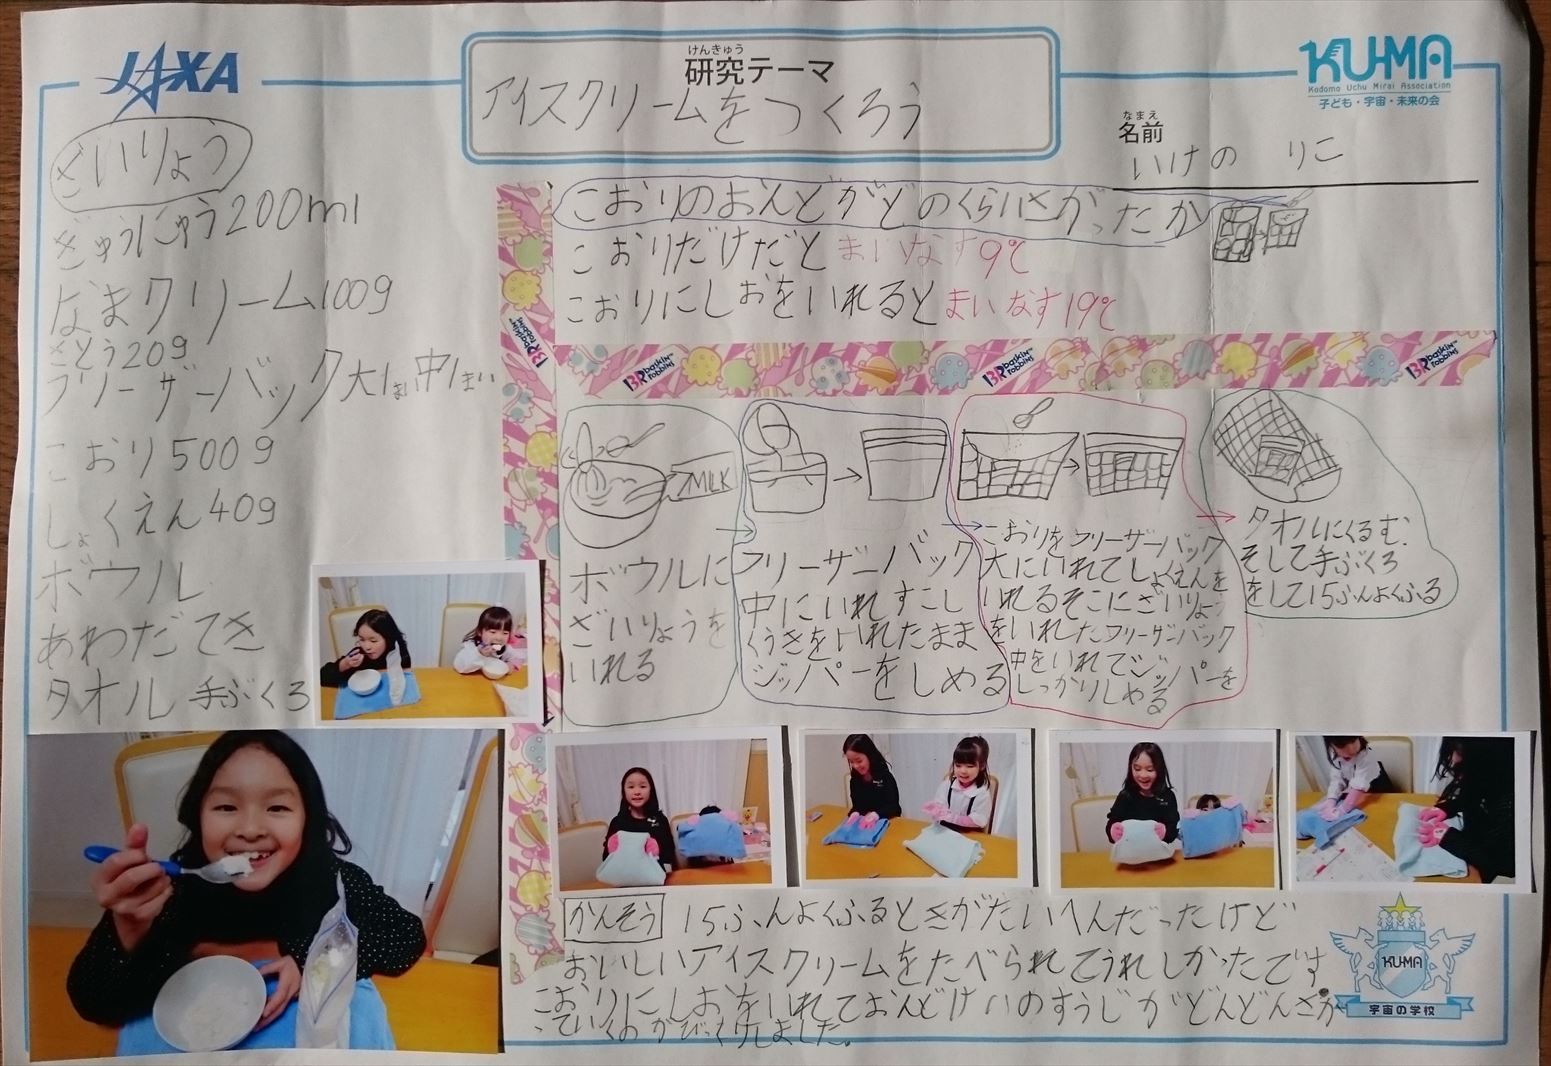 JAXA
けんきゅう
研究テーマ
アイスクリームをつくろう
KU-MA
Kodomo Uchu Mirai Association
子ども・宇宙・未来の会
なまえ
名前
いけの りこ
ざいりょう
ぎゅうにゅう200ml
なまクリーム100g
さとう20g
フリーザーバック大1まい中1まい
こおり500g
しょくえん40g
ボウル
あわだてき
タオル 手ぶくろ
こおりのおんどがどのくらいさがったか
こおりだけだとまいなす9℃
こおりにしおをいれるとまいなす19℃
BR baskin robbins
BR baskin robbins
BR baskin robbins
BR baskin robbins
MILK
ボウルに
ざいりょうを
いれる
フリーザーバック
中にいれすこし
くうきをいれたまま
ジッパーをしめる
こおりをフリーザーバック
大にいれてしょくえんを
いれるそこにざいりょ
をいれたフリーザーバック
中をいれてジッパーを
しっかりしめる
タオルにくるむ
そして手ぶくろ
をして15ふんよくふる
かんそう 15ふんよくふるときがたいへんだったけど
おいしいアイスクリームをたべられてうれしかったです
こおりにしおをいれておんどけいのすうじがどんどんさが
っていくのがびっくりしました。
KUMA
宇宙の学校